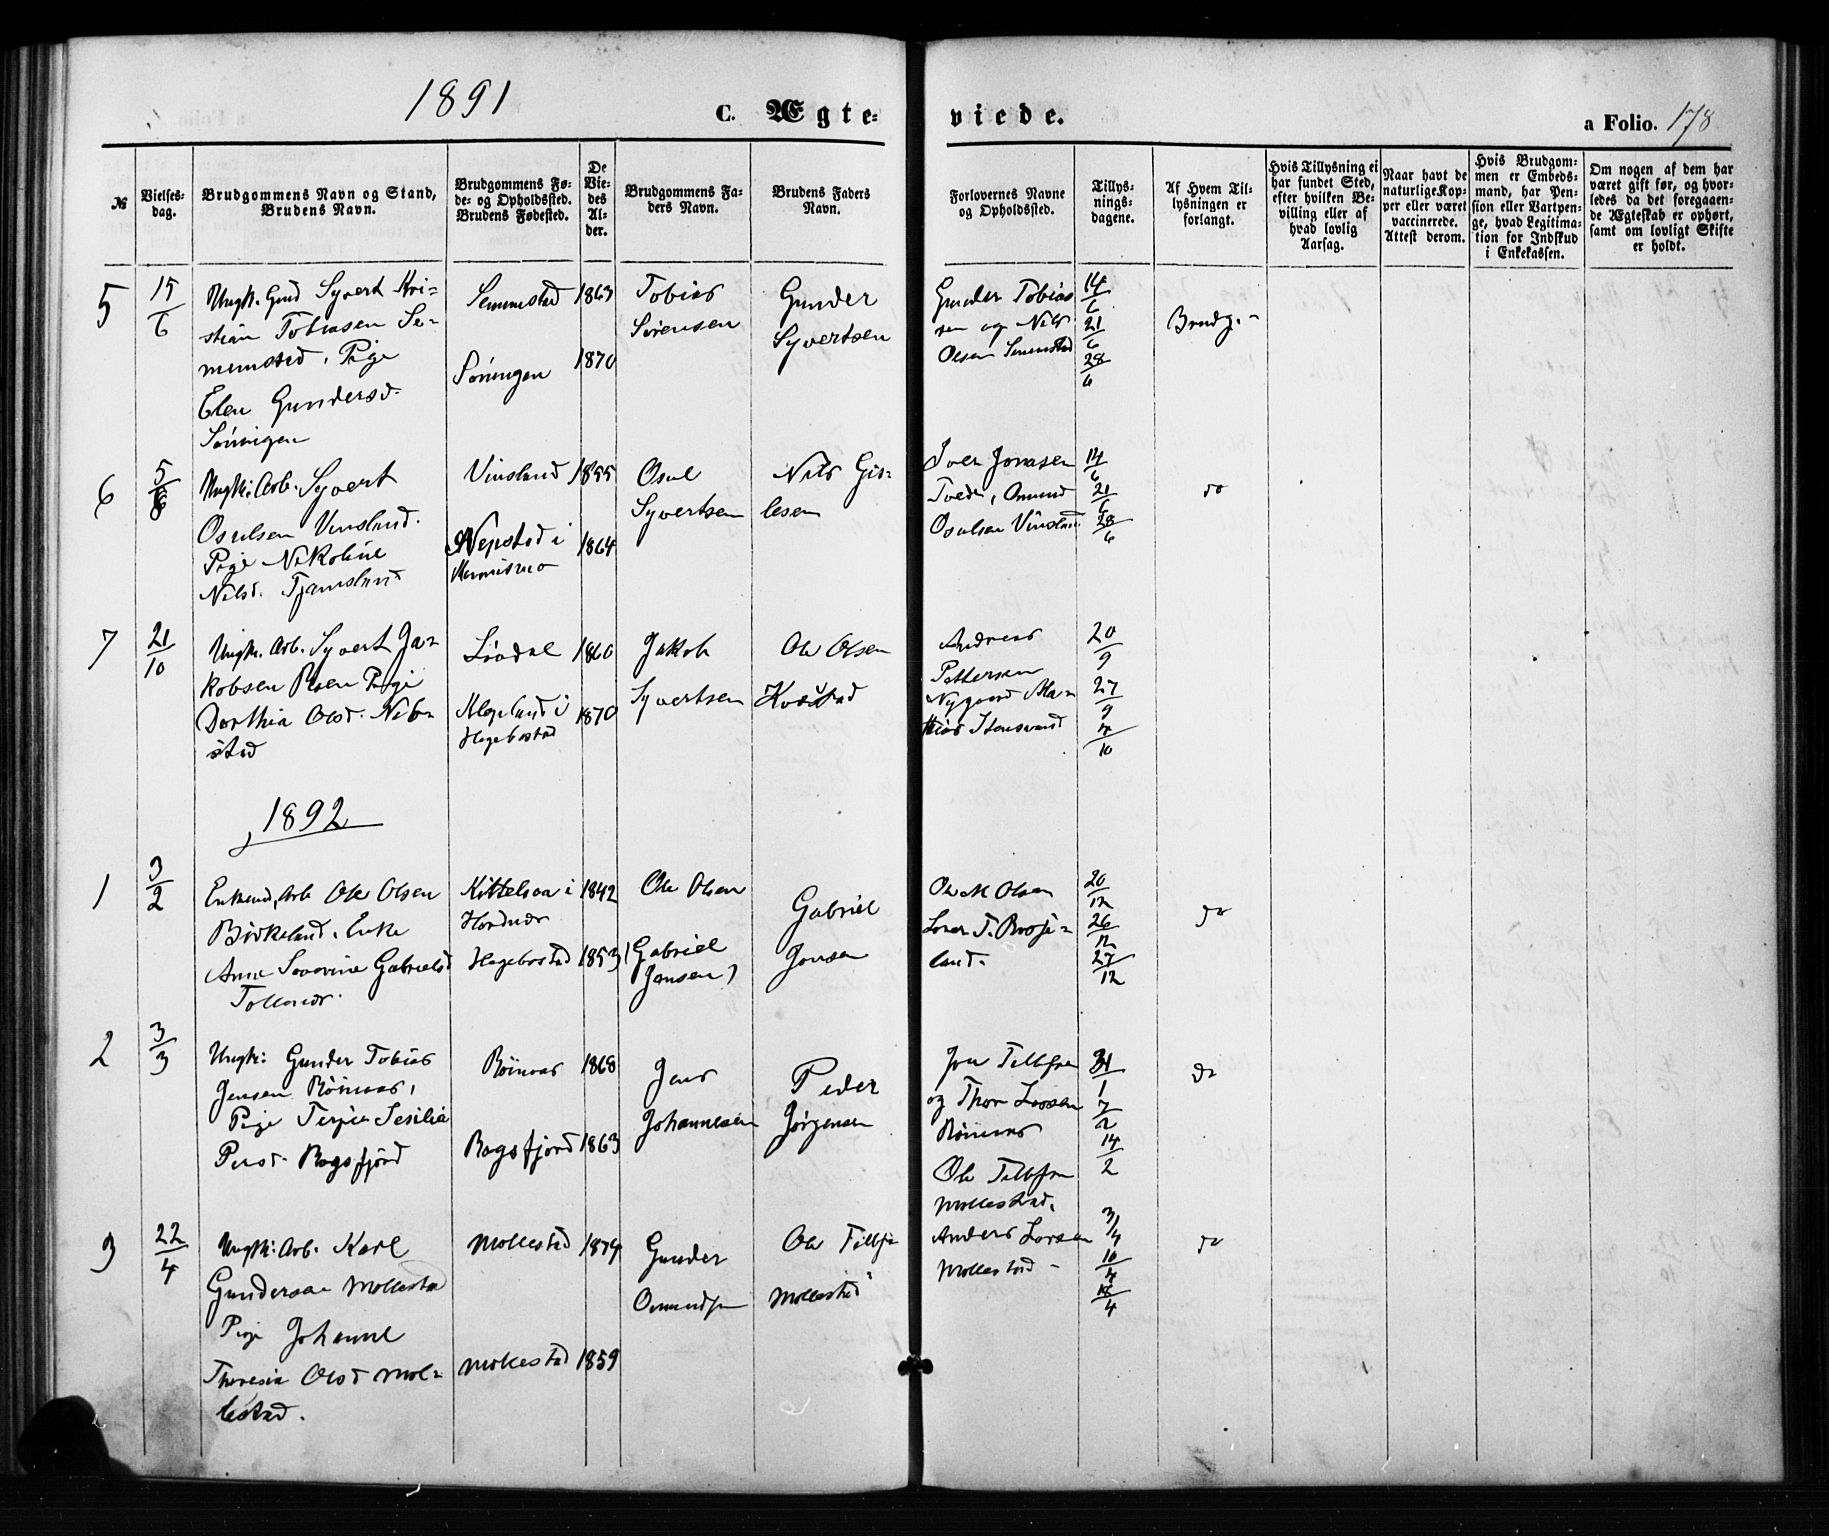 1891
C. Ægte-
viede.
a Folio. 178
№
Vielses-
dag.
Brudgommens Navn og Stand,
Brudens Navn.
Brudgommens Fø-
de- og Opholdsted.
Brudens Fødested.
De
Vie-
des
Al-
der.
Brudgommens Fa-
ders Navn.
Brudens Faders
Navn.
Forlovernes Navne
og Opholdssted.
Tillys-
nings-
dagene.
Af Hvem Til-
lysningen er
forlangt.
Hvis Tillysning ei
har fundet Sted,
efter hvilken Be-
villing eller af
hvad lovlig
Aarsag.
Naar havt de
naturlige Kop-
per eller været
vaccinerede.
Attest derom.
Hvis Brudgom-
men er Embeds-
mand, har Pen-
sion eller Vartpen-
ge, hvad Legitima-
tion for Indskud
i Enkekassen.
Om nogen af dem har
været gift før, og hvor-
ledes da det foregaaen-
de Ægteskab er ophørt,
samt om lovligt Skifte
er holdt.
5
15/6
Ungk. Gmd Syvert Kri-
stian Tobiasen Se-
memsted, Pige
Elen Gundersd.
Sønnigen
Semmsted
Sønningen
1863
1870
Tobias
Sørensen
Gunder
Syvertsen
Gunder Tobias
sen og Nils
Olsen Semmstad
14/6
21/6
28/6
Brudg.
6
5/8
Ungk. Arb. Syvert
Osulsen Vinsland.
Pige Nikoline
Nilsd. Tjomsland
Vinsland
Nepstad i
1855
1864
Osul
Syvertsen
Nils Gis-
lesen
Iver Jonasen
Tveden, Omund
Osulsen Vinsland
14/6
21/6
28/6
do
7
21/10
Ungk. Arb. Syvert Ja-
kobsen Risen Pige
Dorthia Olsd. Neb-
stad
Lindal
Hegeland i
Hegebostad
1860
1870
Jakob
Syvertsen
Ole Olsen
Kvåstad
Andreas
Pettersen
Nygaard Ma-
thias Stensvand
20/9
27/9
4/10
1892
1
3/2
Enkemd, Arb Ole Olsen
Birkeland, Enke
Anne Severine Gabrielsd
Kittelsaa i
Hornnes
Hegebostad
1842
1853
Ole Olsen
(Gabriel
Jonsen)
Gabriel
Jonsen
Ole M Olsen
land.
20/12
26/12
27/12
do
2
3/3
Ungk. Gunder Tobias
Jensen Röinaas,
Pige Terjea Sesilia
Persd. Rogsfjörd
Röinaas
Rogsfjörd
1868
1863
Jens
Johannesen
Peder
Jørgensen
Jon Tellefsen
og Thor Larsen
Röinaas
31/1
7/2
14/2
do
3
22/4
Ungk. Arb. Karl
Gundersen Mollestad
Pige Johanne
Theresia Olsd Mol-
lestad.
Mollestad
Mollestad
1874
1859
Gunder
Omundsen
Ole Tellefsen
Mollestad
Ole Tellefsen
Mollestad.
Anders Larsen
Mollestad
3/4
10/4
18/4
do